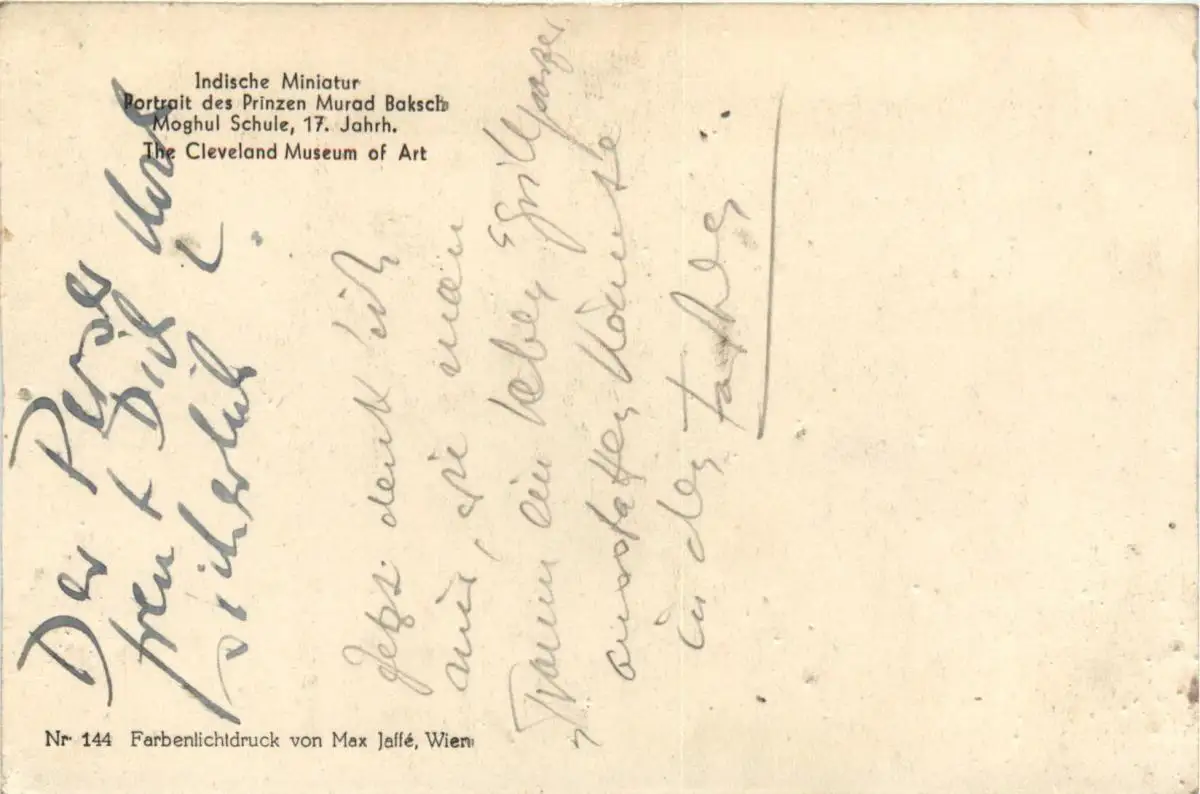 Indische Miniatur
Portrait des Prinzen Murad Baksch
Moghul Schule, 17. Jahrh.
The Cleveland Museum of Art
Der Perser
freut Dich
sicherlich
Jetzt denk ich
mir, wie man
ein lieber Grillparzer
ausstatten könnte
in der
Nr 144 Farbenlichtdruck von Max Jaffé, Wien